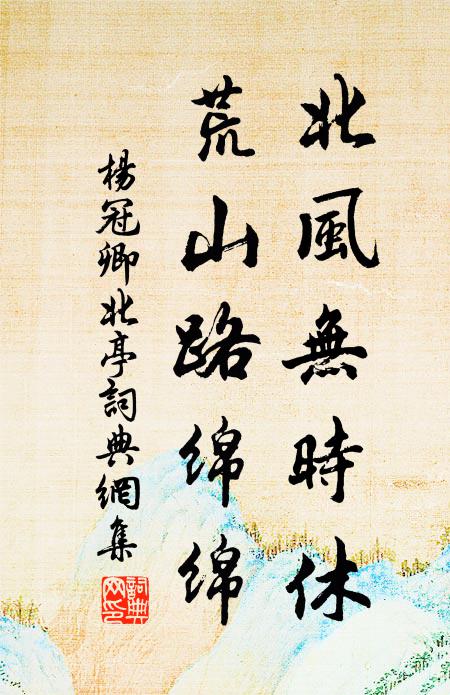 北風無時休
荒山路綿綿
楊冠卿北亭詞典網集
詞典網印